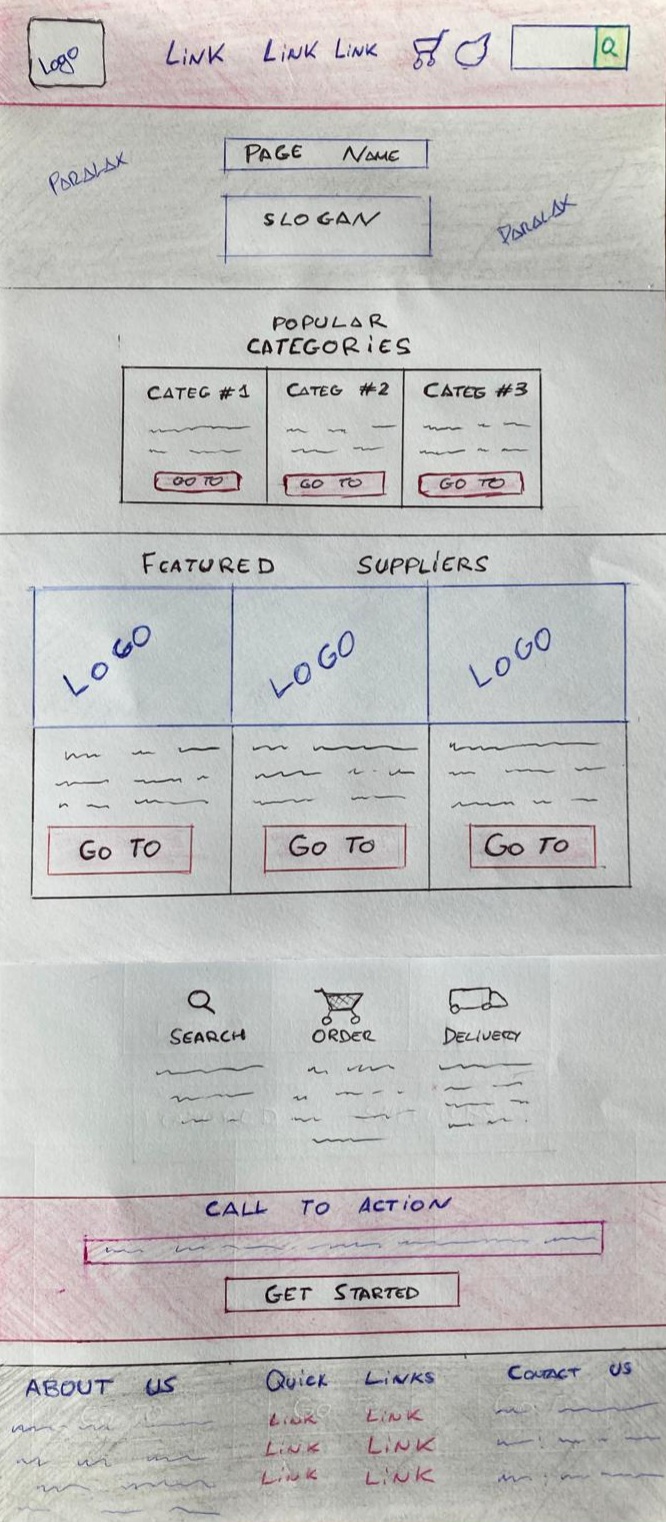 Logo
LiNK LiNK LiNK
PARALAX
PAGE NAME
SLOGAN
PARALAX
POPULAR
CATEGORiES
CATEG #1 CATEG #2 CATEG #3
GO TO GO TO GO TO
FEATURED SUPPLiERS
LOGO LOGO LOGO
GO TO GO TO GO TO
SEARCH ORDER DELiVERY
CALL TO ACTiON
GET STARTED
ABOUT US QUiCK LiNKS CONTACT US
LiNK LiNK
LiNK LiNK
LiNK LiNK